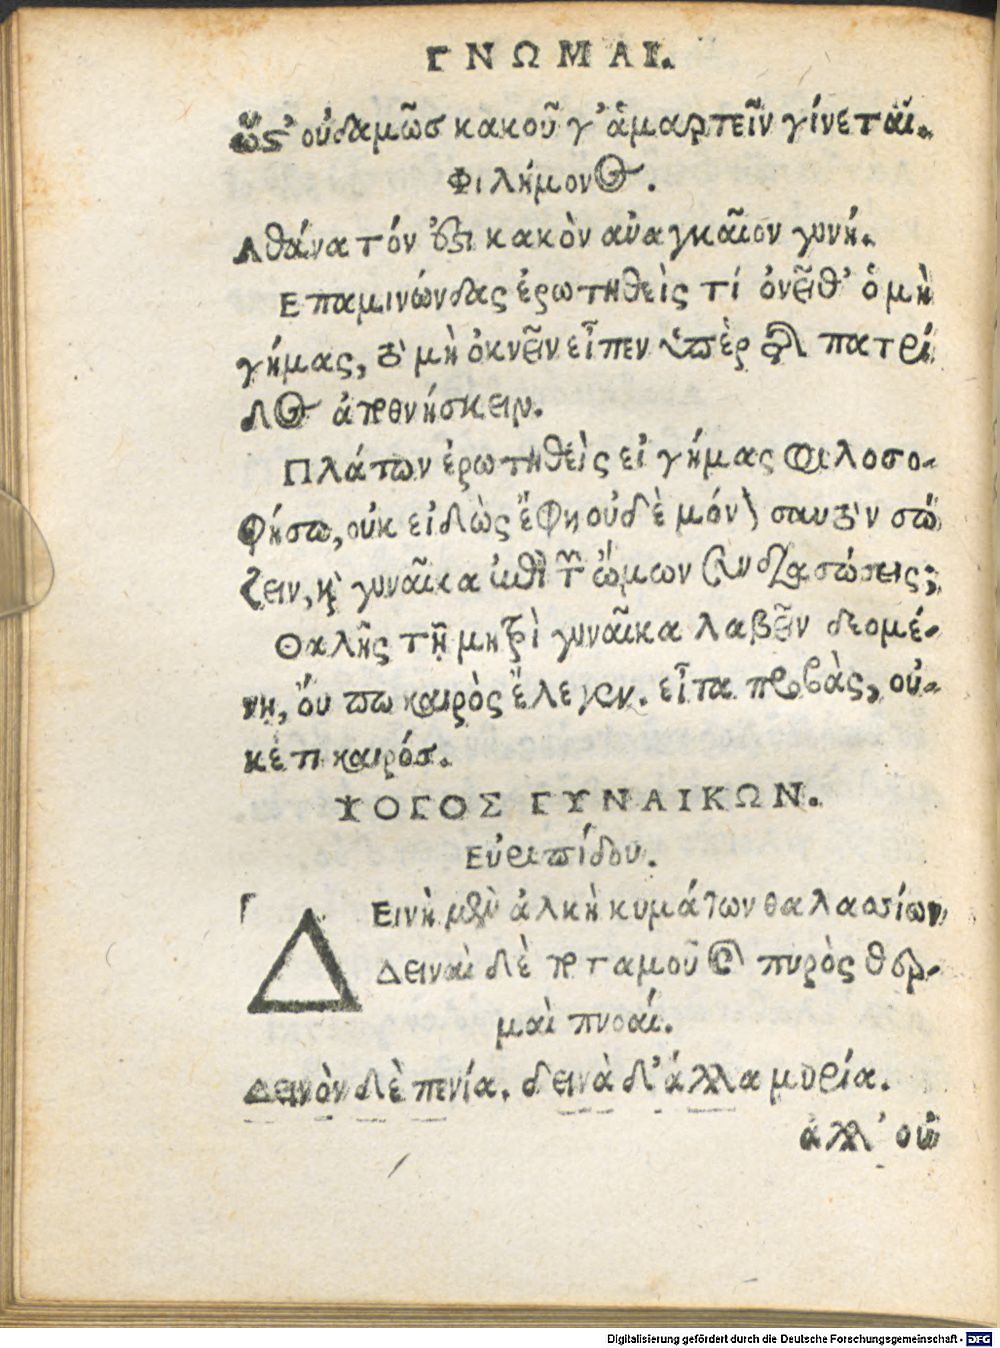 ΓΝΩΜΑΙ.
ὥς οὐδαμῶσ κακοῦ γ' ἁμαρτεῖν γίνεται.
Φιλήμονος.
Αθάνατόν ἐστι κακὸν ἀναγκαῖον γυνή.
Επαμινώνδας ἐρωτηθεὶς τί ὀνεῖθ' ὁ μὴ
γήμας, τὸ μὴ ὀκνεῖν εἶπεν ὑπὲρ τῆς πατρί
δος ἀποθνήσκειν.
Πλάτων ἐρωτηθεὶς εἰ γήμας φιλοσο-
φήσω, οὐκ εἰδὼς ἔφη οὐδὲ μόνον σαυτὸν σώ
ζειν, καὶ γυναῖκα ἐπὶ τῶν ὤμων συνδιασώσεις;
Θαλῆς τῇ μητρὶ γυναῖκα λαβεῖν δεομέ-
νῃ, ὄυ πω καιρὸς ἔλεγεν. εἶτα προβὰς, οὐ-
κέτι καιρόσ.
ΨΟΓΟΣ ΓΥΝΑΙΚΩΝ.
Εὐριπίδου.
ΔΕινὴ μὲν ἀλκὴ κυμάτων θαλασσίων
Δειναὶ δὲ ποταμοῦ καὶ πυρὸς θερ-
μαὶ πνοαί.
Δεινὸν δὲ πενία. δεινὰ δ' ἄλλα μυρία.
ἀλλ' οὐ
Digitalisierung gefördert durch die Deutsche Forschungsgemeinschaft - DFG